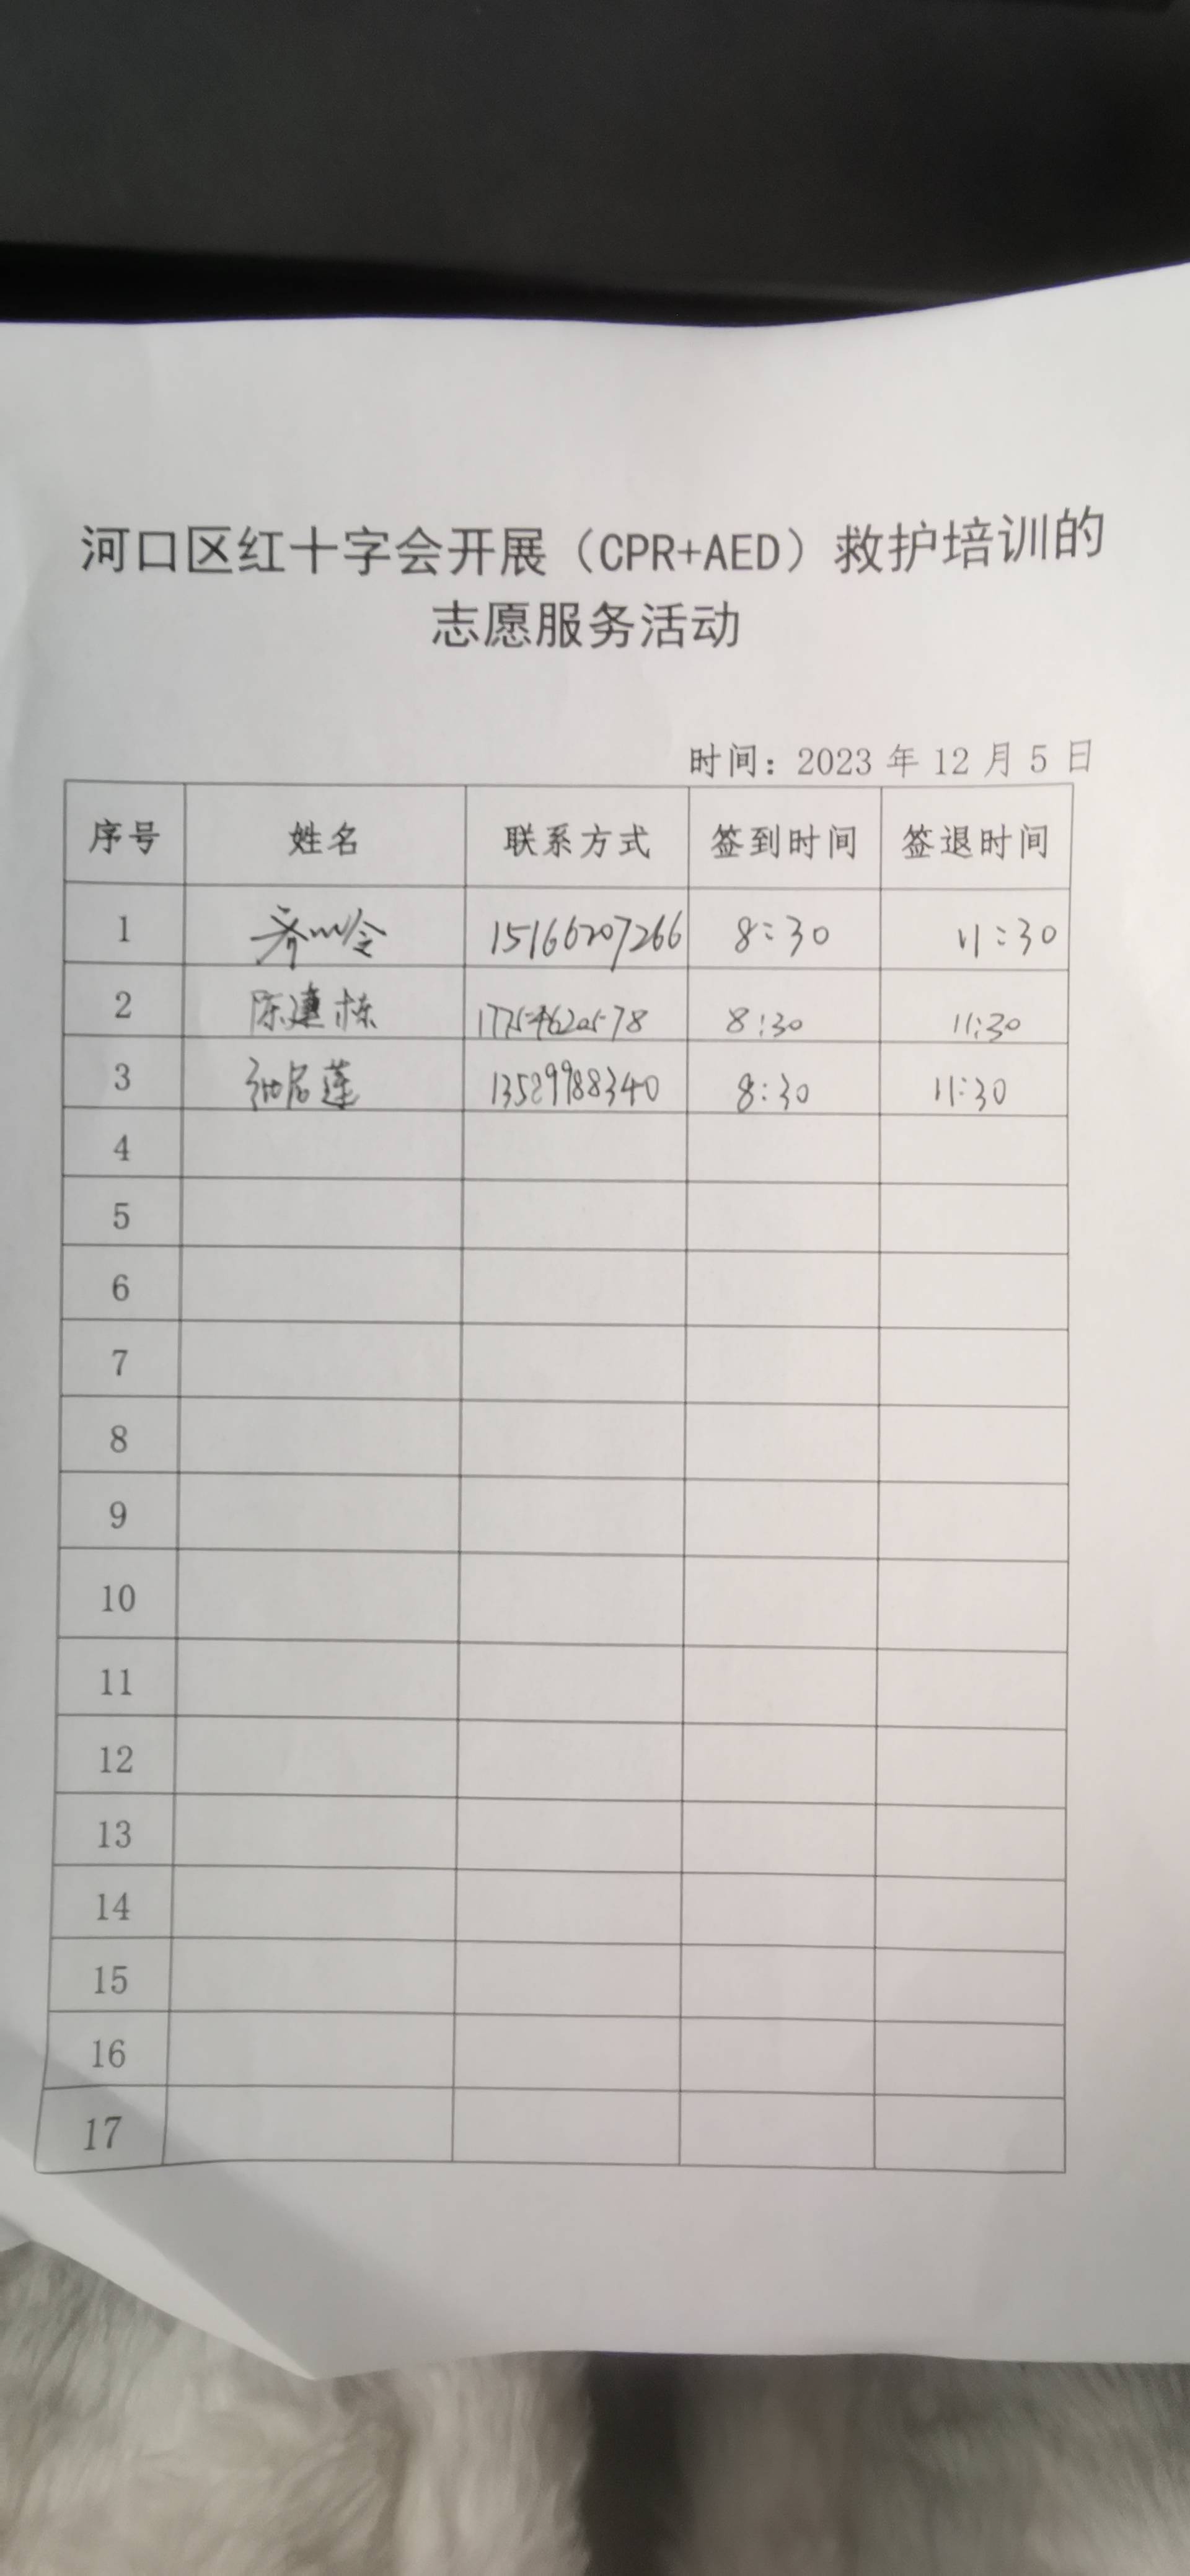 河口区红十字会开展（CPR+AED）救护培训的
志愿服务活动
时间：2023 年 12 月 5 日
序号 姓名 联系方式 签到时间 签退时间
1 15166207266 8:30 11:30
2 陈建栋 8:30 11:30
3 13589988340 8:30 11:30
4
5
6
7
8
9
10
11
12
13
14
15
16
17